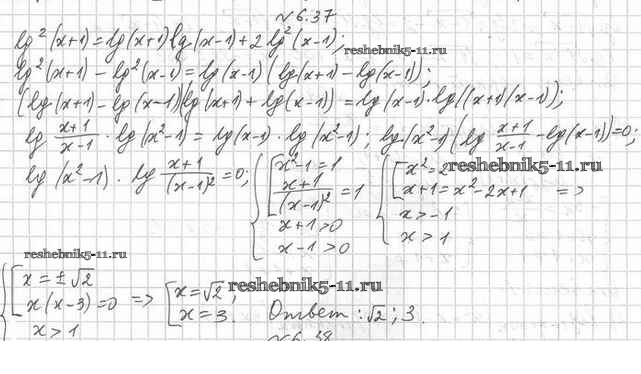 № 6.37
lg²(x+1) = lg(x+1) lg(x-1) + 2 lg²(x-1);
reshebnik5-11.ru
lg²(x+1) - lg²(x-1) = lg(x-1) (lg(x+1) - lg(x-1));
(lg(x+1) - lg(x-1))(lg(x+1) + lg(x-1)) = lg(x-1)·lg((x+1)(x-1));
lg (x+1)/(x-1) · lg(x²-1) = lg(x-1)·lg(x²-1); lg(x²-1)(lg (x+1)/(x-1) - lg(x-1)) = 0;
lg(x²-1) · lg (x+1)/(x-1)² = 0; { [ x²-1 = 1 (x+1)/(x-1)² = 1 x+1>0 x-1>0 { [ x² = 2 x+1 = x²-2x+1 x>-1 x>1 =>
reshebnik5-11.ru
reshebnik5-11.ru
{ [ x = ±√2 x(x-3) = 0 x>1 => [ x = √2; x = 3. Ответ: √2; 3.
reshebnik5-11.ru
№ 6.38